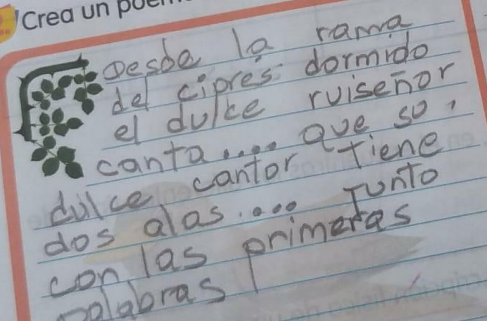 Crea un poem
Desde la rama
del ciprés dormido
el dulce ruiseñor
canta.... que so,
dulce cantor tiene
dos alas.... Junto
con las primeras
palabras